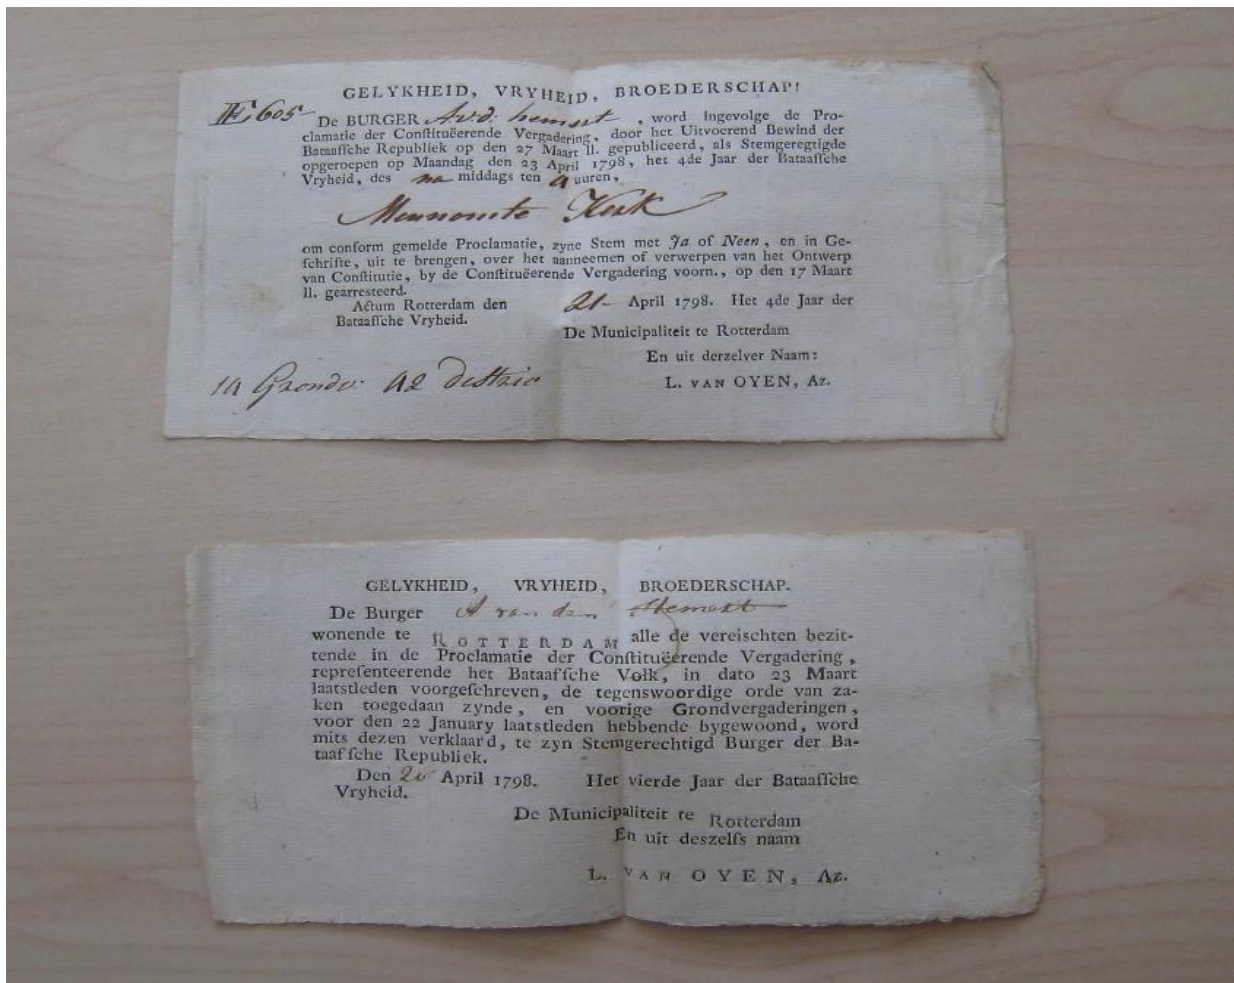 GELYKHEID, VRYHEID, BROEDERSCHAP!
605
De BURGER A.v.d. hemert, word ingevolge de Pro-
clamatie der Conſtituëerende Vergadering, door het Uitvoerend Bewind der
Bataafſche Republiek op den 27 Maart ll. gepubliceerd, als Stemgeregtigde
opgeroepen op Maandag den 23 April 1798, het 4de Jaar der Bataafſche
Vryheid, des na middags ten uuren,
Mennonite Kerk
om conform gemelde Proclamatie, zyne Stem met Ja of Neen, en in Ge-
ſchrifte, uit te brengen, over het aanneemen of verwerpen van het Ontwerp
van Conſtitutie, by de Conſtituëerende Vergadering voorn., op den 17 Maart
ll. gearresteerd.
Actum Rotterdam den 21 April 1798. Het 4de Jaar der
Bataafſche Vryheid.
De Municipaliteit te Rotterdam
En uit derzelver Naam:
L. VAN OYEN, Az.
Grondv: Distric
GELYKHEID, VRYHEID, BROEDERSCHAP.
De Burger A van den Hemert
wonende te ROTTERDAM alle de vereischten bezit-
tende in de Proclamatie der Conſtituëerende Vergadering,
repreſenteerende het Bataafſche Volk, in dato 23 Maart
laatstleden voorgeſchreven, de tegenswoordige orde van za-
ken toegedaan zynde, en voorige Grondvergaderingen,
voor den 22 January laatstleden hebbende bygewoond, word
mits dezen verklaard, te zyn Stemgerechtigd Burger der Ba-
taafſche Republiek.
Den 20 April 1798. Het vierde Jaar der Bataafſche
Vryheid.
De Municipaliteit te Rotterdam
En uit deszelfs naam
L. VAN OYEN, Az.